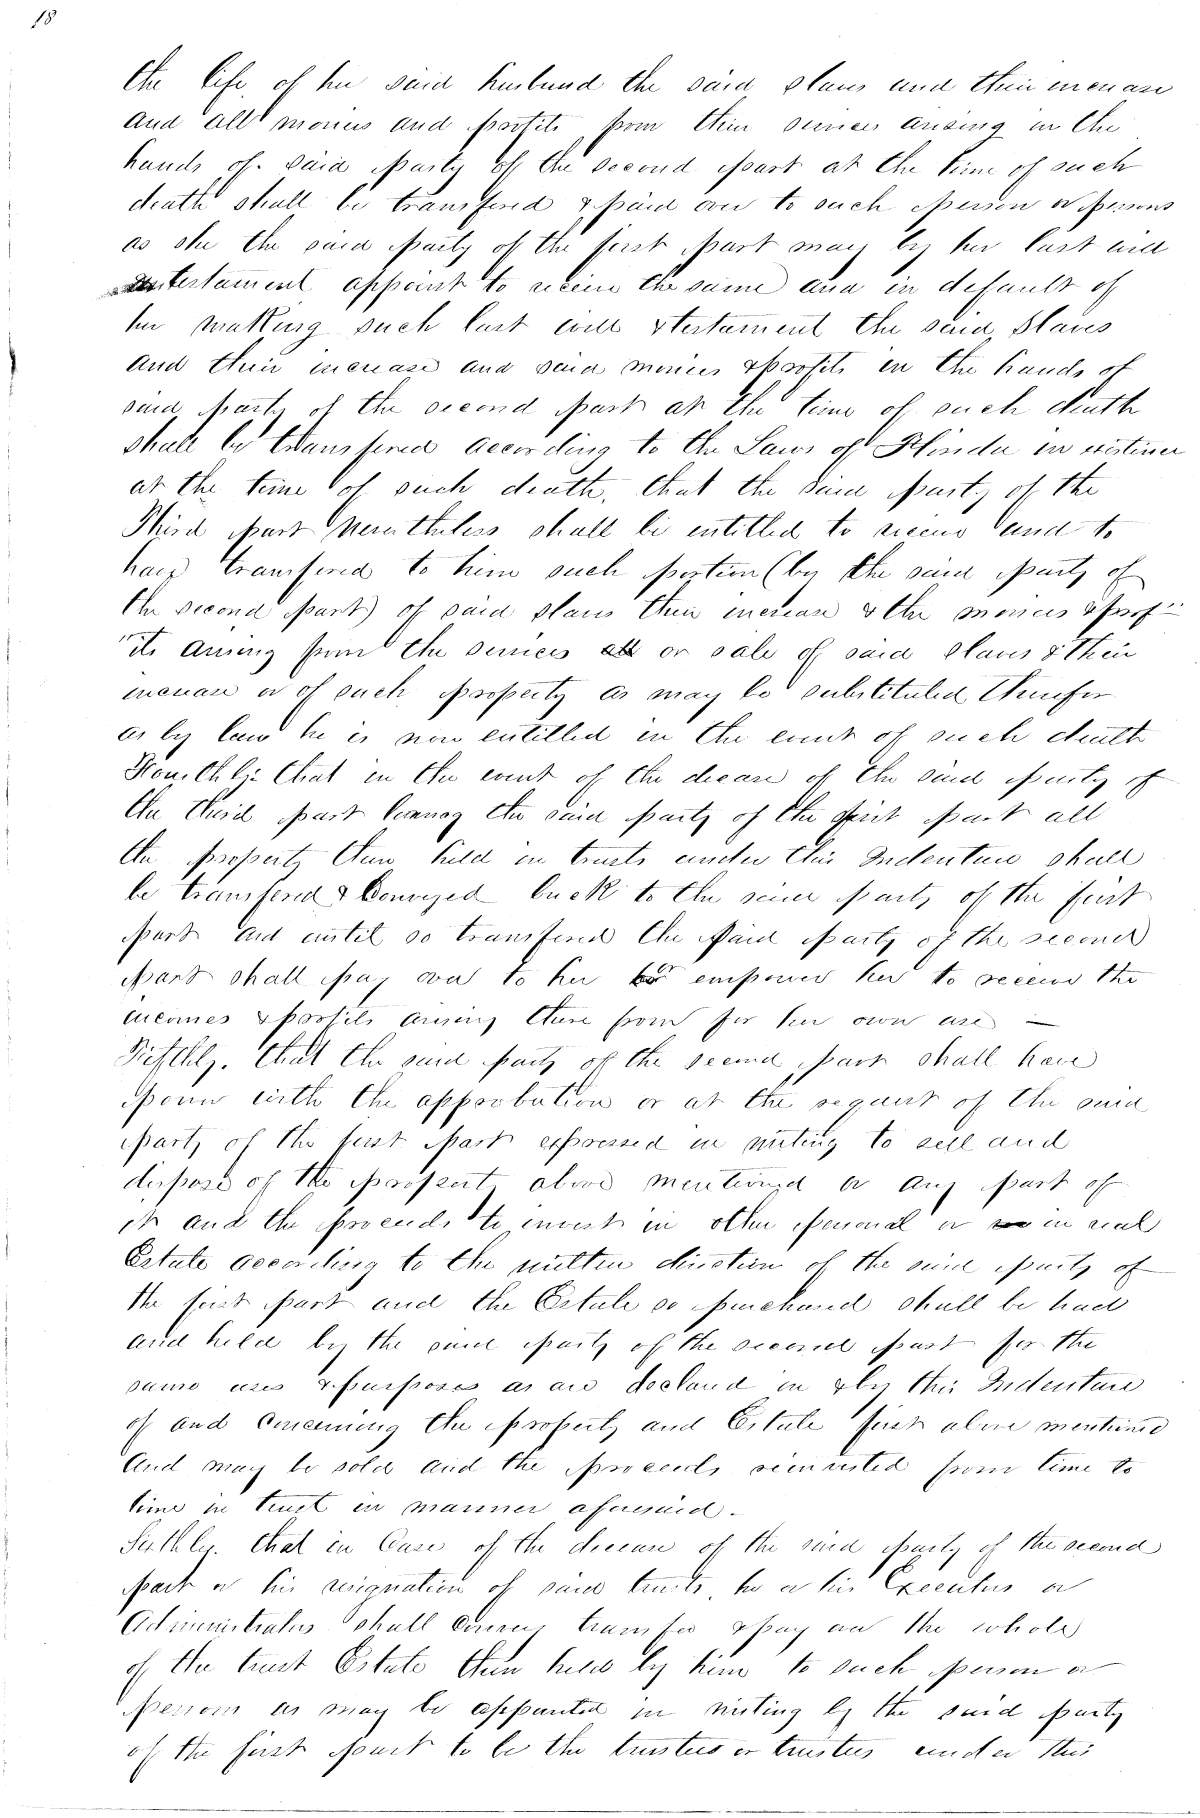 18
the life of her said husband the said slaves and their increase
and all monies and profits from their services arising in the
hands of said party of the second part at the time of such
death shall be transfered & paid over to such person or persons
as she the said party of the first part may by her last will
testament appoint to receive the same and in default of
her making such last will & testament the said Slaves
and their increase and said monies & profits in the hands of
said party of the second part at the time of such death
shall be transfered according to the Laws of Florida in existence
at the time of such death, that the said party of the
Third part Nevertheless shall be entitled to receive and to
have transfered to him such portion (by the said party of
the second part) of said slaves their increase & the monies & prof-
"its arising from the services all or sale of said slaves & their
increase or of such property as may be substituted therefor
as by law he is now entitled in the event of such death
Fourthly: that in the event of the decease of the said party of
the third part leaving the said party of the first part all
the property then held in trusts under this Indenture shall
be transfered & Conveyed back to the said party of the first
part and until so transfered the said party of the second
part shall pay over to her or empower her to receive the
incomes & profits arising there from for her own use —
Fifthly. that the said party of the second part shall have
power with the approbation or at the request of the said
party of the first part expressed in writing to sell and
dispose of the property above mentioned or any part of
it and the proceeds to invest in other personal or in real
Estate according to the written direction of the said party of
the first part and the Estate so purchased shall be had
and held by the said party of the second part for the
same uses & purposes as are declared in & by this Indenture
of and concerning the property and Estate first above mentioned
And may be sold and the proceeds reinvested from time to
time in trust in manner aforesaid.
Sixthly. that in Case of the decease of the said party of the second
part or his resignation of said trusts, he or his Executors or
Administrators shall convey transfer & pay over the whole
of the trust Estate then held by him to such person or
persons as may be appointed in writing by the said party
of the first part to be the trustee or trustees under this